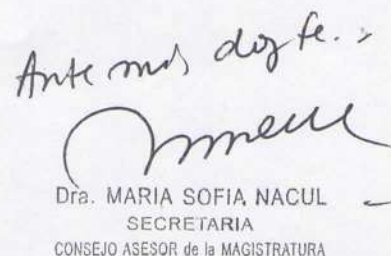 Ante mí doy fe.
Dra. MARIA SOFIA NACUL
SECRETARIA
CONSEJO ASESOR de la MAGISTRATURA